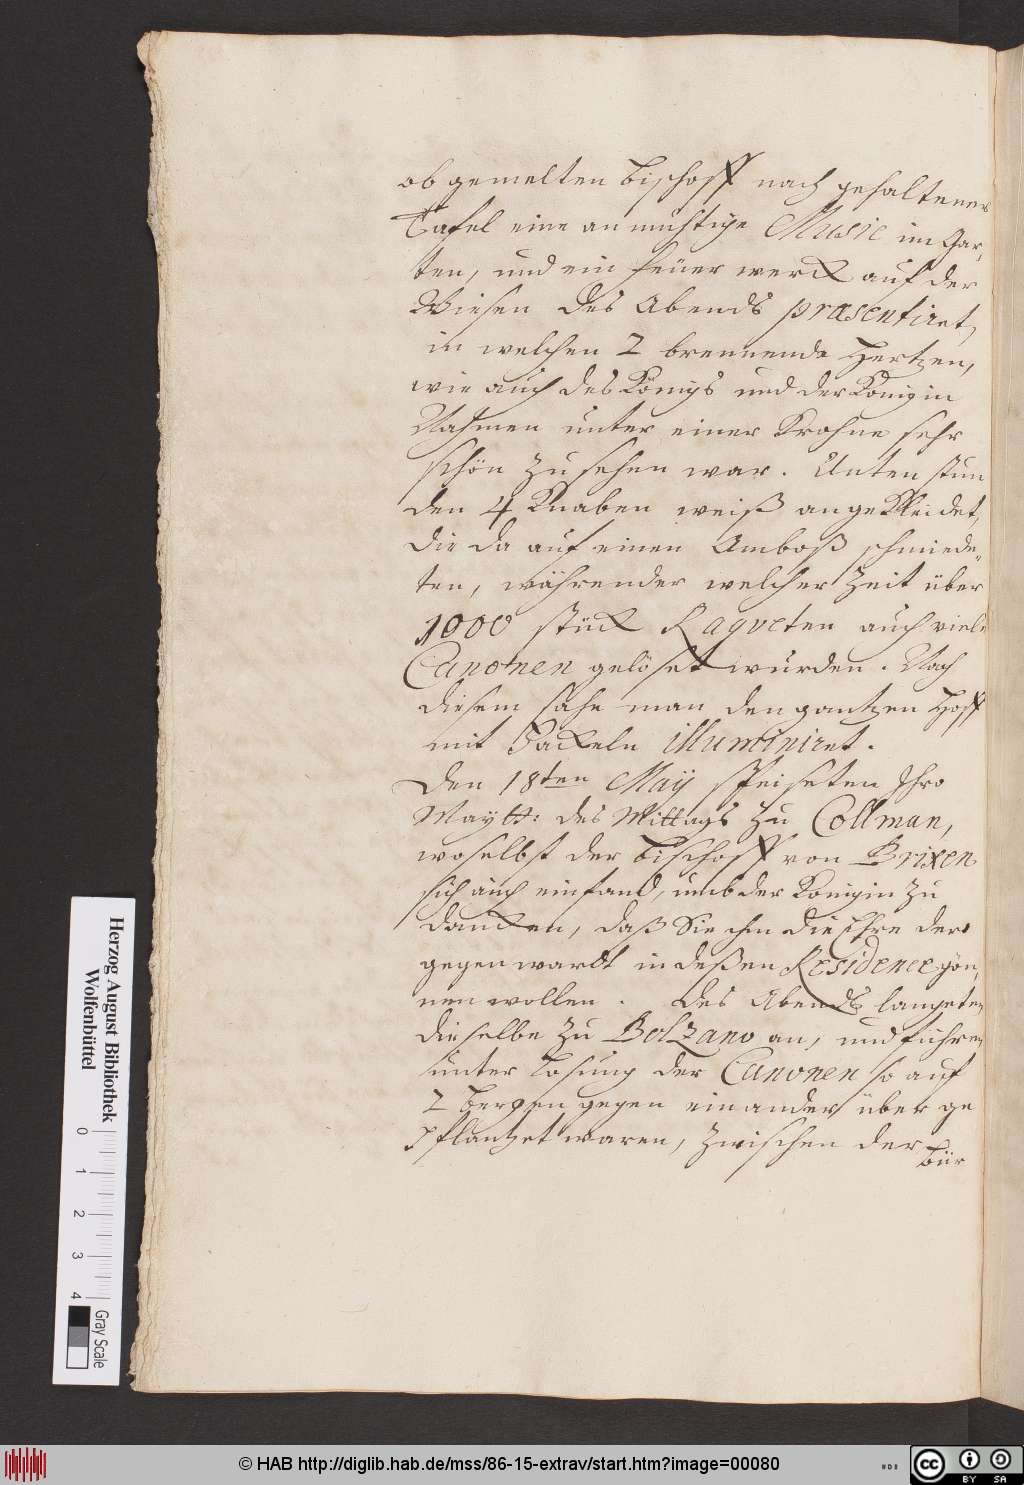 ob gemelten Bischoff nach gehaltener
Tafel eine anmuhtige Music im Gar,
ten, und ein feüer werck auf der
Wiesen des Abends præsentiret,
in welchen 2 brennende Hertzen,
wie auch des Königs und der Königin
Nahmen unter einer Krohne sehr
schön zu sehen war. Unten stun
den 4 Knaben weiß angekleidet,
die da auf einen Amboß schmiede=
ten, währender welcher Zeit über
1000 stück Raqveten auch viele
Canonen gelöset wurden. Nach
diesem sahe man den gantzen Hoff
mit Fackeln illuminiret.
Den 18ten Maÿ speiseten Ihro
Maytt: des Mittags zu Collman,
woselbst der Bischoff von Brixen
sich auch einfand, umb der Königin zu
dancken, daß Sie ihm die Ehre dero
gegenwardt in deßen Residence gön,
nen wollen. Des Abends langeten
dieselbe zu Bolzano an, und fuhren
unter Losung der Canonen so auf
2 bergen gegen einander über ge
pflantzet waren, zwischen der
Bür
Herzog August Bibliothek
Wolfenbüttel
0 1 2 3 4
Gray Scale
© HAB http://diglib.hab.de/mss/86-15-extrav/start.htm?image=00080
cc BY SA